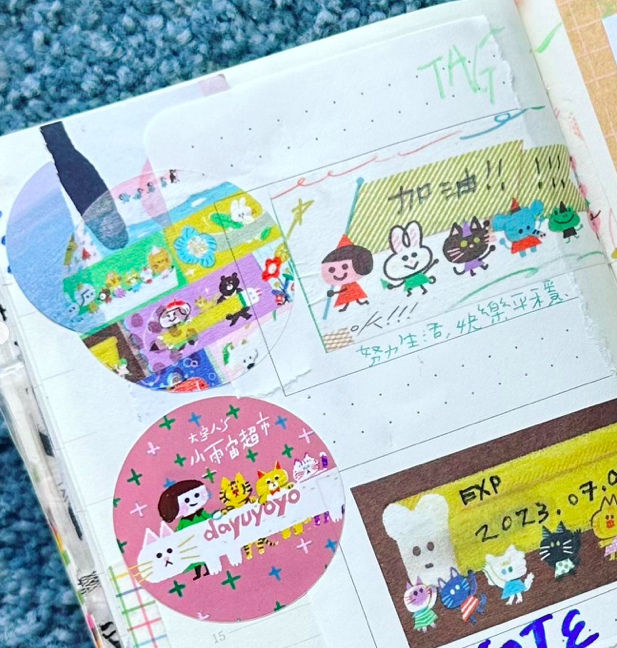 TAG
加油!! !!!
OK!!!
努力生活,快樂平穩.
大宇人了
小雨宙超市
dayuyoyo
EXP
2023.07.0
OTE
15